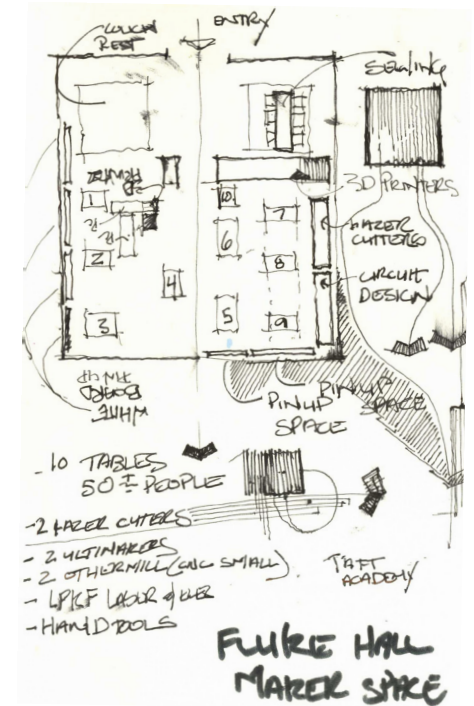 COUCH
REST
ENTRY
SEWING
3D PRINTERS
3D PRINTER
LAZER
CUTTERS
CIRCUIT
DESIGN
1
2
3
4
5
6
7
8
9
10
WHITE
BOARD
PINUP
PINUP SPACE
SPACE
- 10 TABLES
50 ± PEOPLE
- 2 LAZER CUTERS
- 2 ULTIMAKERS
- 2 OTHERMILL (CNC SMALL)
- LPKF
- HAND TOOLS
TAFT
ACADEMY
FLUKE HALL
MAKER SPACE